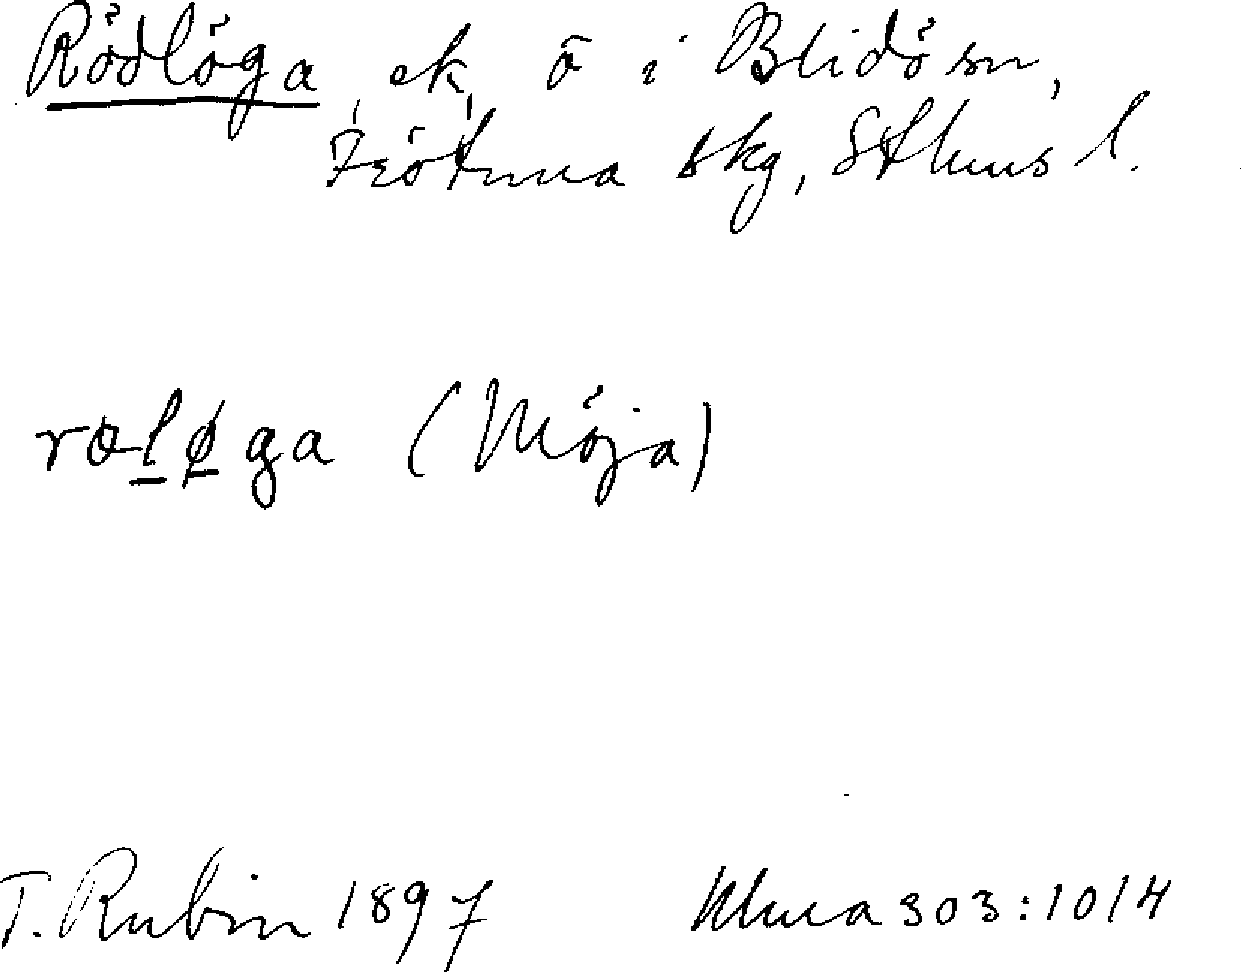 Rödlöga, ek, ö i Blidö sn,
Frötuna skg, Sthms l.
ræløga (Möja)
T. Rubin 1897 Ulma 303:10/4